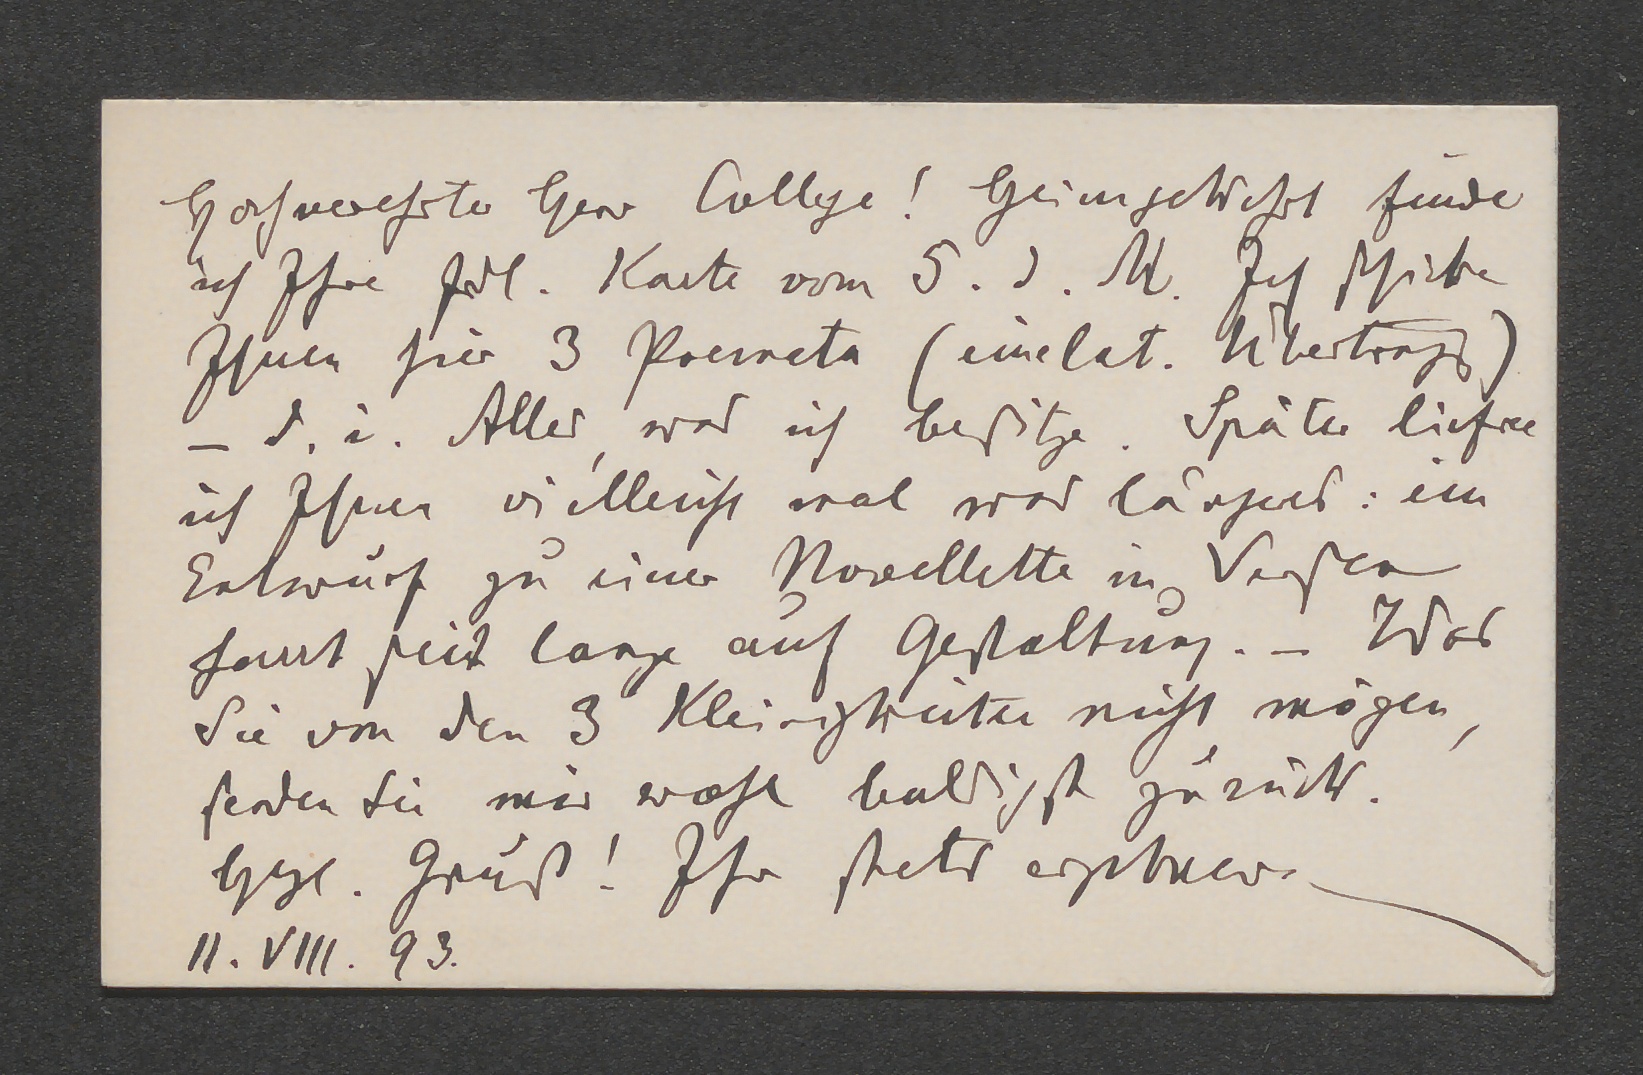 Hochverehrter Herr College! Heimgekehrt finde
ich Ihre frdl. Karte vom 5. d. M. Ich schicke
Ihnen hier 3 Poemata (eine lat. Übertragg)
– d. i. Alles, was ich besitze. Später liefre
ich Ihnen vielleicht mal was längeres: ein
Entwurf zu einer Novellette in Versen
harrt seit lange auf Gestaltung. – Was
Sie von den 3 Kleinigkeiten nicht mögen,
senden Sie mir wohl baldigst zurück.
Hzl. Gruß! Ihr stets ergebener
11. VIII. 93.